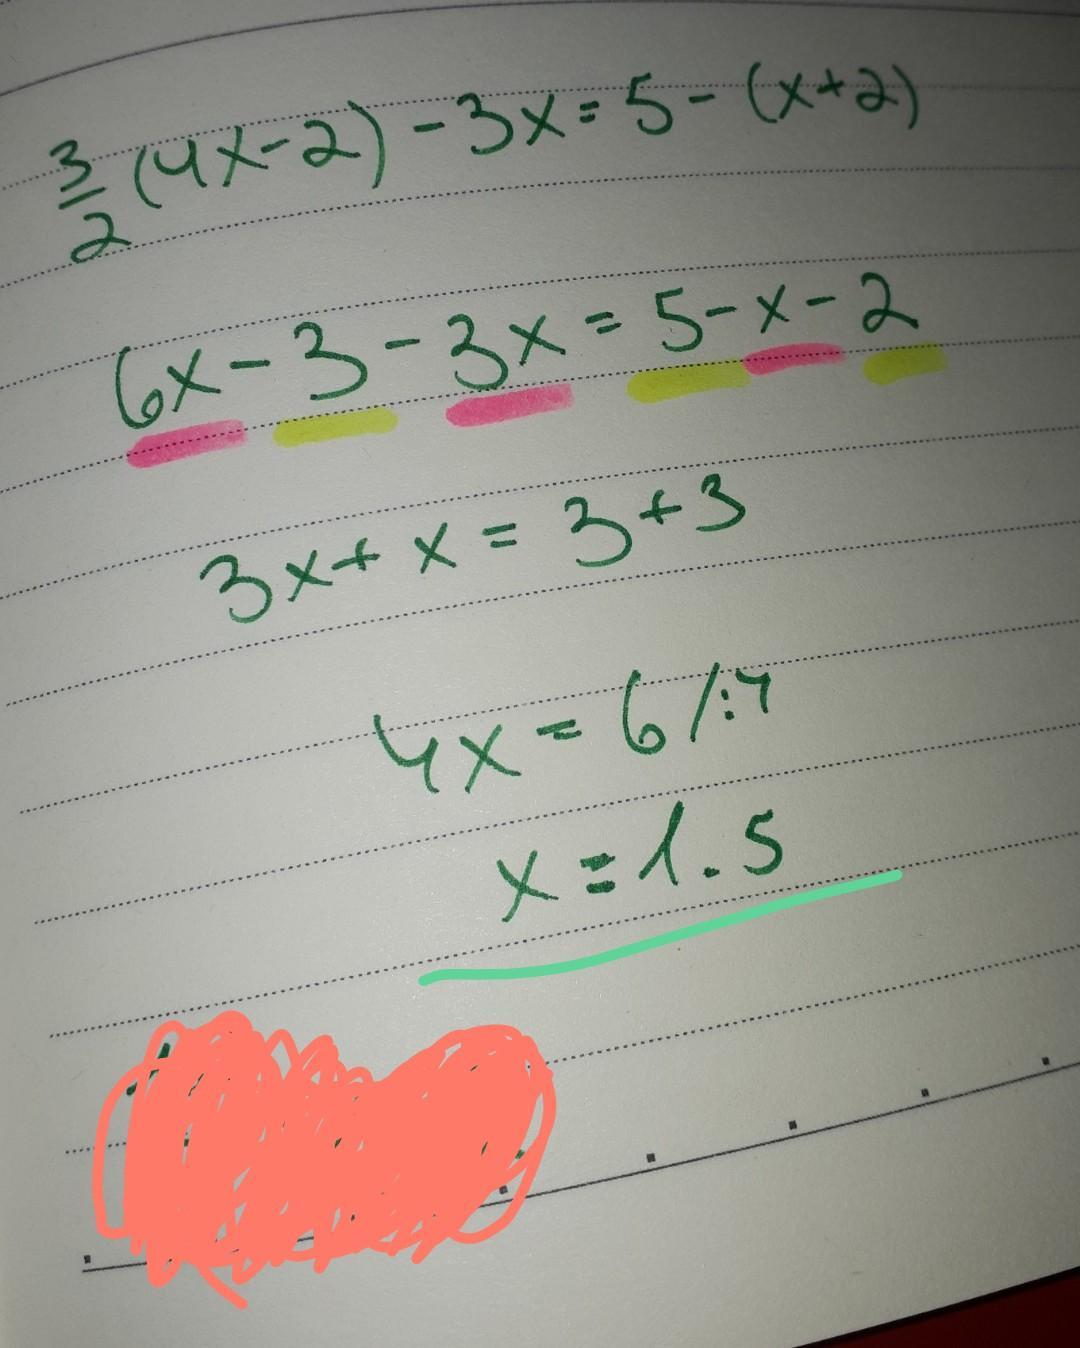 3/2 (4x-2) - 3x = 5 - (x+2)
6x - 3 - 3x = 5 - x - 2
3x + x = 3 + 3
4x = 6 /:4
x = 1.5